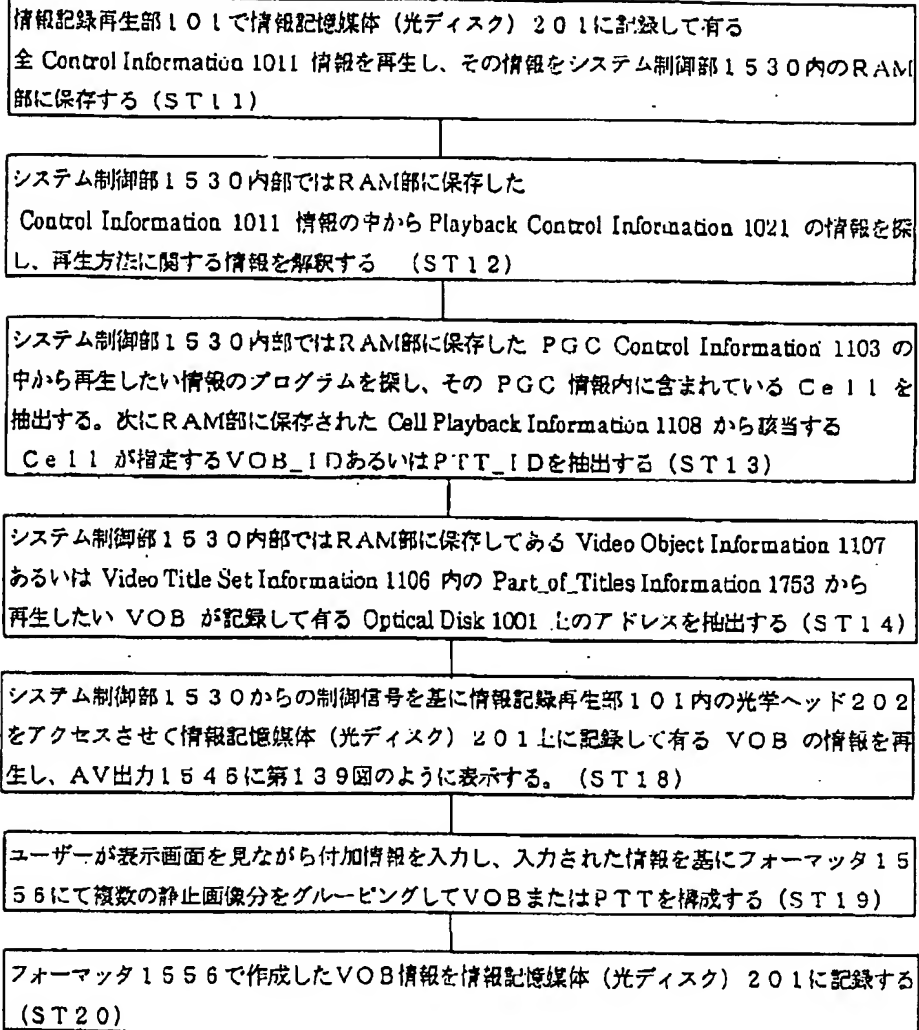 情報記録再生部101で情報記憶媒体(光ディスク)201に記録して有る
全 Control Information 1011 情報を再生し、その情報をシステム制御部1530内のRAM
部に保存する(ST11)
システム制御部1530内部ではRAM部に保存した
Control Information 1011 情報の中から Playback Control Information 1021 の情報を探
し、再生方法に関する情報を解釈する (ST12)
システム制御部1530内部ではRAM部に保存した PGC Control Information 1103 の
中から再生したい情報のプログラムを探し、その PGC 情報内に含まれている Cell を
抽出する。次にRAM部に保存された Cell Playback Information 1108 から該当する
Cell が指定するVOB_IDあるいはPTT_IDを抽出する(ST13)
システム制御部1530内部ではRAM部に保存してある Video Object Information 1107
あるいは Video Title Set Information 1106 内の Part_of_Titles Information 1753 から
再生したい VOB が記録して有る Optical Disk 1001 上のアドレスを抽出する(ST14)
システム制御部1530からの制御信号を基に情報記録再生部101内の光学ヘッド202
をアクセスさせて情報記憶媒体(光ディスク)201上に記録して有る VOB の情報を再
生し、AV出力1546に第139図のように表示する。(ST18)
ユーザーが表示画面を見ながら付加情報を入力し、入力された情報を基にフォーマッタ15
56にて複数の静止画像分をグルーピングしてVOBまたはPTTを構成する(ST19)
フォーマッタ1556で作成したVOB情報を情報記憶媒体(光ディスク)201に記録する
(ST20)